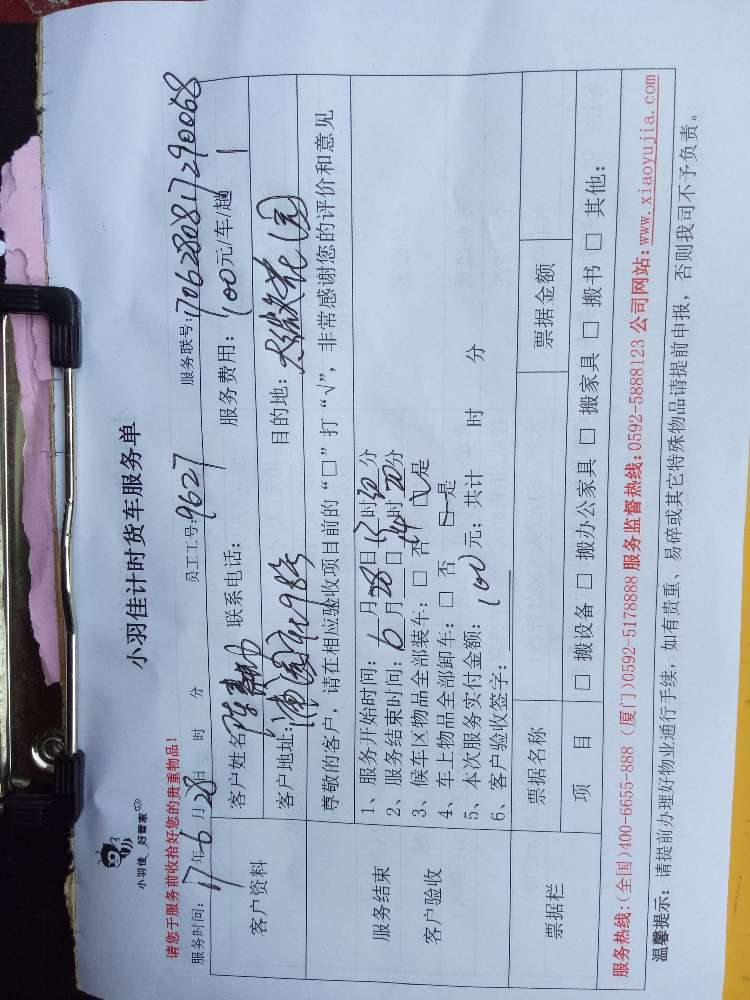 小羽佳 好管家
小羽佳计时货车服务单
请您于服务前收拾好您的贵重物品！
服务时间：17年6月28日 时 分 员工工号：9627 服务联号：1706280817290068
客户资料
客户姓名 联系电话： 服务费用：100元/车/趟 1
客户地址： 目的地：
服务结束
客户验收
尊敬的客户，请在相应验收项目前的“□”打“√”，非常感谢您的评价和意见
1、服务开始时间：6月28日 时30分
2、服务结束时间：6月 日 时 分
3、候车区物品全部装车：□ 否 □ 是
4、车上物品全部卸车：□ 否 □ 是
5、本次服务实付金额：100元；共计 时 分
6、客户验收签字：
票据栏
票据名称 票据金额
项 目 □ 搬设备 □ 搬办公家具 □ 搬家具 □ 搬书 □ 其他：
服务热线：(全国)400-6655-888 (厦门)0592-5178888 服务监督热线：0592-5888123 公司网站：www.xiaoyujia.com
温馨提示：请提前办理好物业通行手续，如有贵重、易碎或其它特殊物品请提前申报，否则我司不予负责。